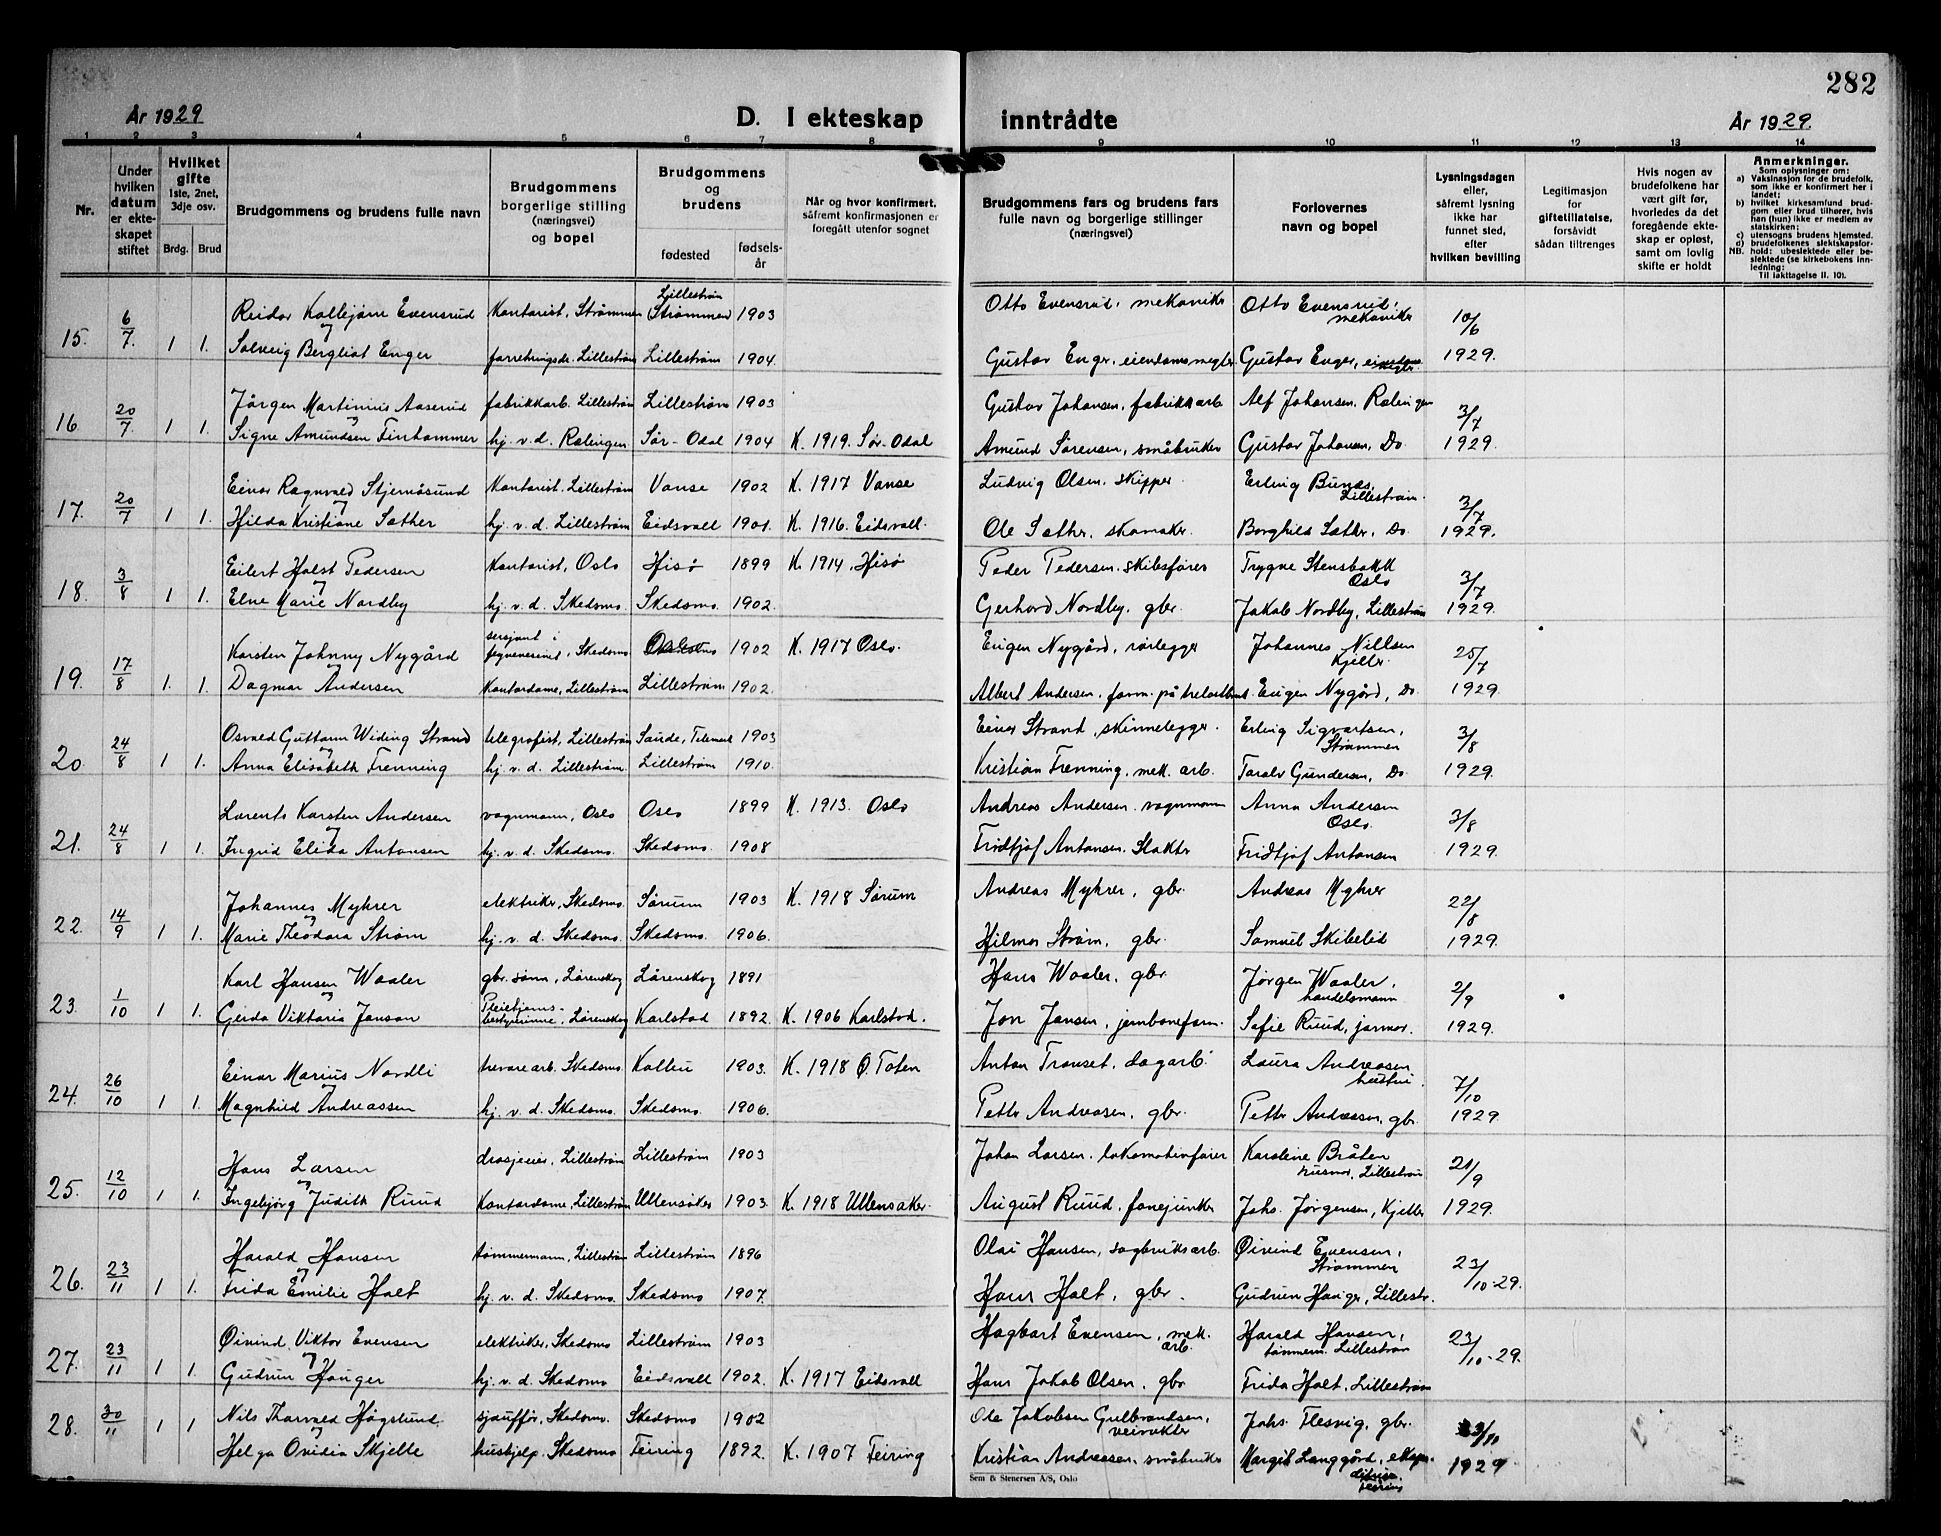 282
År 1929
D. I ekteskap inntrådte
År 1929.
1 2 3 4 5 6 7 8 9 10 11 12 13 14
Nr.
Under hvilken datum er ekteskapet stiftet
Hvilket gifte 1ste, 2net, 3dje osv.
Brdg. Brud
Brudgommens og brudens fulle navn
Brudgommens borgerlige stilling (næringsvei) og bopel
Brudgommens og brudens
fødested
fødselsår
Når og hvor konfirmert, såfremt konfirmasjonen er foregått utenfor sognet
Brudgommens fars og brudens fars fulle navn og borgerlige stillinger (næringsvei)
Forlovernes navn og bopel
Lysningsdagen eller, såfremt lysning ikke har funnet sted, efter hvilken bevilling
Legitimasjon for giftetillatelse, forsåvidt sådan tiltrenges
Hvis nogen av brudefolkene har vært gift før, hvorledes da det foregående ekteskap er opløst, samt om lovlig skifte er holdt
Anmerkninger.
Som oplysninger om:
a) Vaksinasjon for de brudefolk, som ikke er konfirmert her i landet;
b) hvilket kirkesamfund brudgom eller brud tilhører, hvis han (hun) ikke er medlem av statskirken;
c) utensogns brudens hjemsted.
d) brudefolkenes slektskapsforhold: ubeslektede eller beslektede (se kirkebokens innledning:
NB. Til iakttagelse II. 10).
15. 6/7 1 1. Reidar Kallejan Evensrud Kontorist, Strømmen Lillestrøm Strømmen 1903 Otto Evensrud, mekaniker Otto Evensrud, mekaniker 10/6
og Solveig Bergliot Enger forretningsdr. Lillestrøm Lillestrøm 1904. Gustav Enger, eiendomsmegler Gustav Enger, 1929.
16. 20/7. 1 1. Jørgen Martinius Aaserud fabrikkarb. Lillestrøm Lillestrøm 1903 Gustav Johansen, fabrikkarb Alf Johansen, Rælingen 3/7
og Signe Amundsen Finhammer hj. v. d. Rælingen Sør-Odal 1904 K. 1919. Sør-Odal Amund Sørensen, småbruker Gustav Johansen, Do 1929.
17. 20/7 1 1. Einar Ragnvald Stjernøsund Kontorist, Lillestrøm Vanse 1902 K. 1917 Vanse Ludvig Olsen, skipper Erling Bunæs, Lillestrøm. 3/7
og Hilda Kristiane Sæther hj. v. d. Lillestrøm Eidsvoll 1901. K. 1916. Eidsvoll. Ole Sæther, skomaker. Borghild Sæther, Do. 1929.
18. 3/8 1 1. Eilert Holst Pedersen Kontorist, Oslo Hisø 1899 K. 1914, Hisø Peder Pedersen, skibsfører Trygve Stensbakk Oslo 3/7
og Elne Marie Nordby hj. v. d. Skedsmo. Skedsmo. 1902. Gerhard Nordby, gbr. Jakob Nordby, Lillestrøm 1929.
19. 17/8 1. 1. Karsten Johnny Nygård sersjant i flyvevesenet, Skedsmo Oslo 1902 K. 1917 Oslo. Eugen Nygård, rørlegger Johannes Nillsen Kjeller. 25/7
og Dagmar Andersen Kontordame, Lillestrøm Lillestrøm 1902. Albert Andersen, form. på Eugen Nygård, Do. 1929.
20. 24/8 1 1. Osvald Guttorm Widing Strand telegrafist, Lillestrøm Saude, Telemark 1903 Einar Strand, skinnelegger. Erling Sigvartsen, Strømmen 3/8
og Anna Elisabeth Frenning hj. v. d. Lillestrøm. Lillestrøm 1910. Kristian Frenning, mek. arb. Taralv Gundersen, Do 1929.
21. 24/8 1 1. Larents Karsten Andersen vognmann, Oslo Oslo 1899 K. 1913. Oslo Andreas Andersen, vognmann Anna Andersen Oslo. 3/8
og Ingrid Elida Antonsen hj. v. d. Skedsmo. Skedsmo. 1908 Fridtjof Antonsen, Slakter Fridtjof Antonsen 1929.
22. 14/9 1 1. Johannes Myhrer elektriker, Skedsmo. Sørum 1903 K. 1918 Sørum Andreas Myhrer, gbr. Andreas Myhrer 22/8
og Marie Theodora Strøm hj. v. d. Skedsmo. Skedsmo. 1906. Hilmar Strøm, gbr. Samuel Skibelid 1929.
23. 1/10 1 1. Karl Hansen Waaler gbr. sønn, Lørenskog Lørenskog 1891 Hans Waaler, gbr Jørgen Waaler, handelsmann 2/9
og Gerda Viktoria Janson Pleiehjemsbestyrerinne, Lørenskog Karlstad 1892. K. 1906 Karlstad. Jon Jansen, jernbaneform. Sofie Ruud, jormor. 1929.
24. 26/10 1 1. Einar Marius Nordli trevarearb. Skedsmo. Kolbu 1903. K. 1918 Ø. Toten Anton Transet, dagarb. Laura Andreasen hustru. 7/10
og Magnhild Andreassen hj. v. d. Skedsmo. Skedsmo. 1906. Petter Andreasen, gbr. Petter Andreassen, gbr. 1929
25. 12/10 1 1. Hans Larsen drosjeeier, Lillestrøm Lillestrøm 1903 Johan Larsen, lokomotivfører Karoline Bråten husmor, Lillestrøm 21/9
og Ingebjørg Judith Ruud Kontordame, Lillestrøm Ullensaker 1903. K. 1918 Ullensaker. August Ruud, fanejunker Johs. Jørgensen, Kjeller 1929.
26. 23/11 1 1. Harald Hansen tømmermann, Lillestrøm Lillestrøm 1896 Olai Hansen, sagbruksarb. Øivind Evensen, Strømmen 23/10-29.
og Frida Emilie Holt hj. v. d. Skedsmo. Skedsmo 1907. Hans Holt, gbr. Gudrun Hauger, Lillestr.
27. 23/11 1 1. Øivind Viktor Evensen elektriker, Skedsmo Lillestrøm 1903 Hagbart Evensen, mek. arb. Harald Hansen, tømmerm. Lillestrøm 23/10-29.
og Gudrun Hauger hj. v. d. Skedsmo Eidsvoll 1902. K. 1917 Eidsvoll Hans Jakob Olsen, gbr Frida Holt, Lillestrøm
28. 30/11 1 1 Nils Thorvald Høgslund sjauffør, Skedsmo. Skedsmo 1902 Ole Jakobsen Gulbrandsen, veivokter Johs. Flesvig, gbr. 3/11
og Helga Ovidia Skjelle hushjelp, Skedsmo Feiring 1892. K. 1907 Feiring Kristian Andreassen, småbruker Margit Langgård, 1929
Sem & Stenersen A/S, Oslo